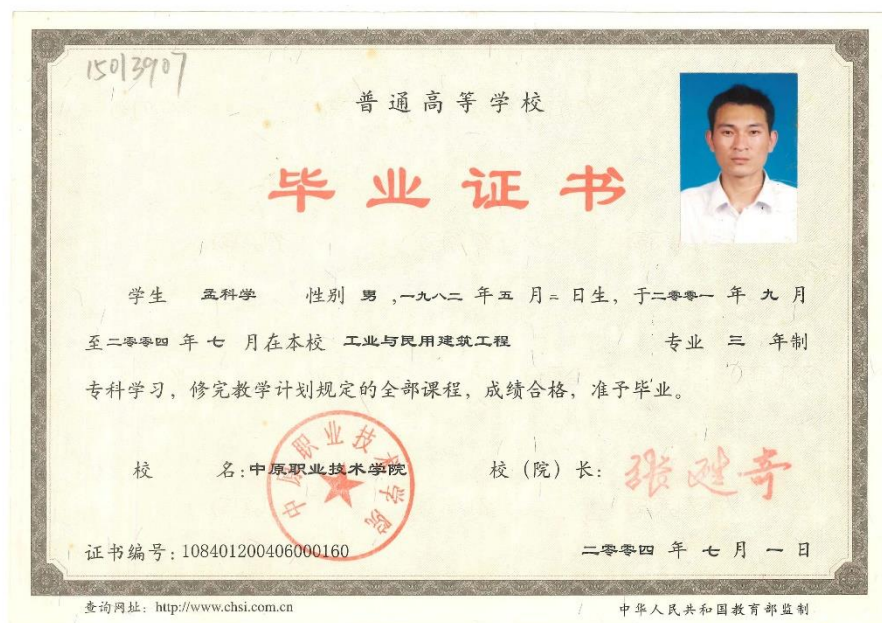 15013907
普通高等学校
毕业证书
学生 孟科学 性别 男 ,一九八二 年 五 月 二 日生，于 二零零一 年 九 月
至 二零零四 年 七 月在本校 工业与民用建筑工程 专业 三 年制
专科学习，修完教学计划规定的全部课程，成绩合格，准予毕业。
中原职业技术学院
校 名：中原职业技术学院 校（院）长：
证书编号：108401200406000160 二零零四 年 七 月 一 日
查询网址：http://www.chsi.com.cn 中华人民共和国教育部监制